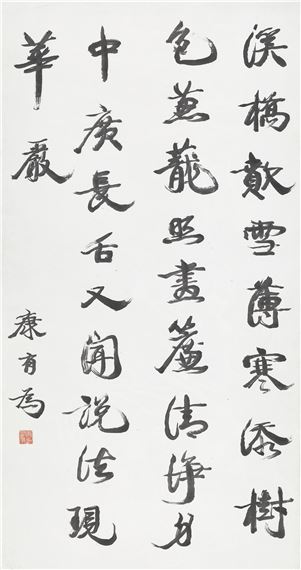 溪橋歕雪薄寒添樹
色蔥蘢照畫簾清浄身
中廣長舌又聞說法現
華嚴
康有為